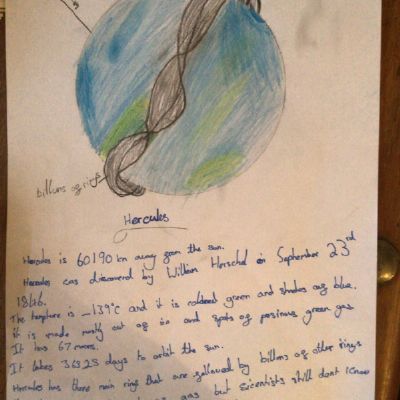 billons of rings
Hercules
Hercules is 60190 km away from the sun.
Hercules was discovered by William Herschel on September 23rd
1846.
The tempture is -139°c and it is coloured green and shades of blue.
it is made mostly out of ice and spots of poisinus green gas
It has 67 moons.
It takes 36325 days to orbit the sun.
Hercules has three main rings that are followed by billons of other rings
gas but scientists still dont know